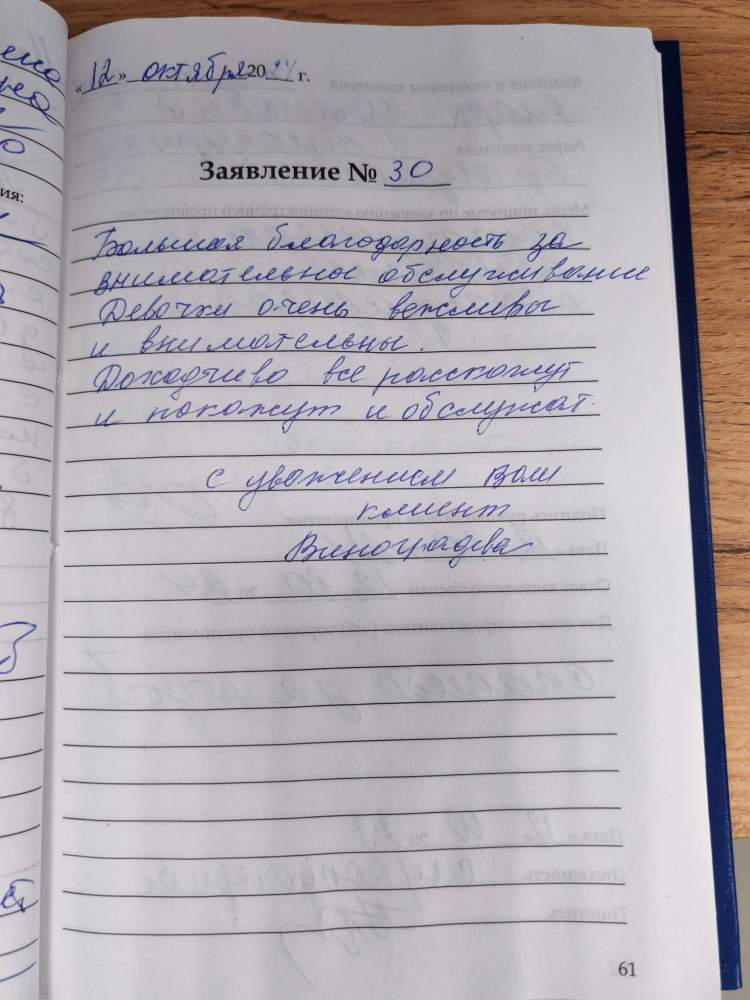 ия:
«12» октября 2024 г.
Заявление № 30
Большая благодарность за
внимательное обслуживание
Девочки очень вежливы
и внимательны.
Доходчиво все расскажут
и покажут и обслужат.
с уважением Вам
клиент
Виноградова
61